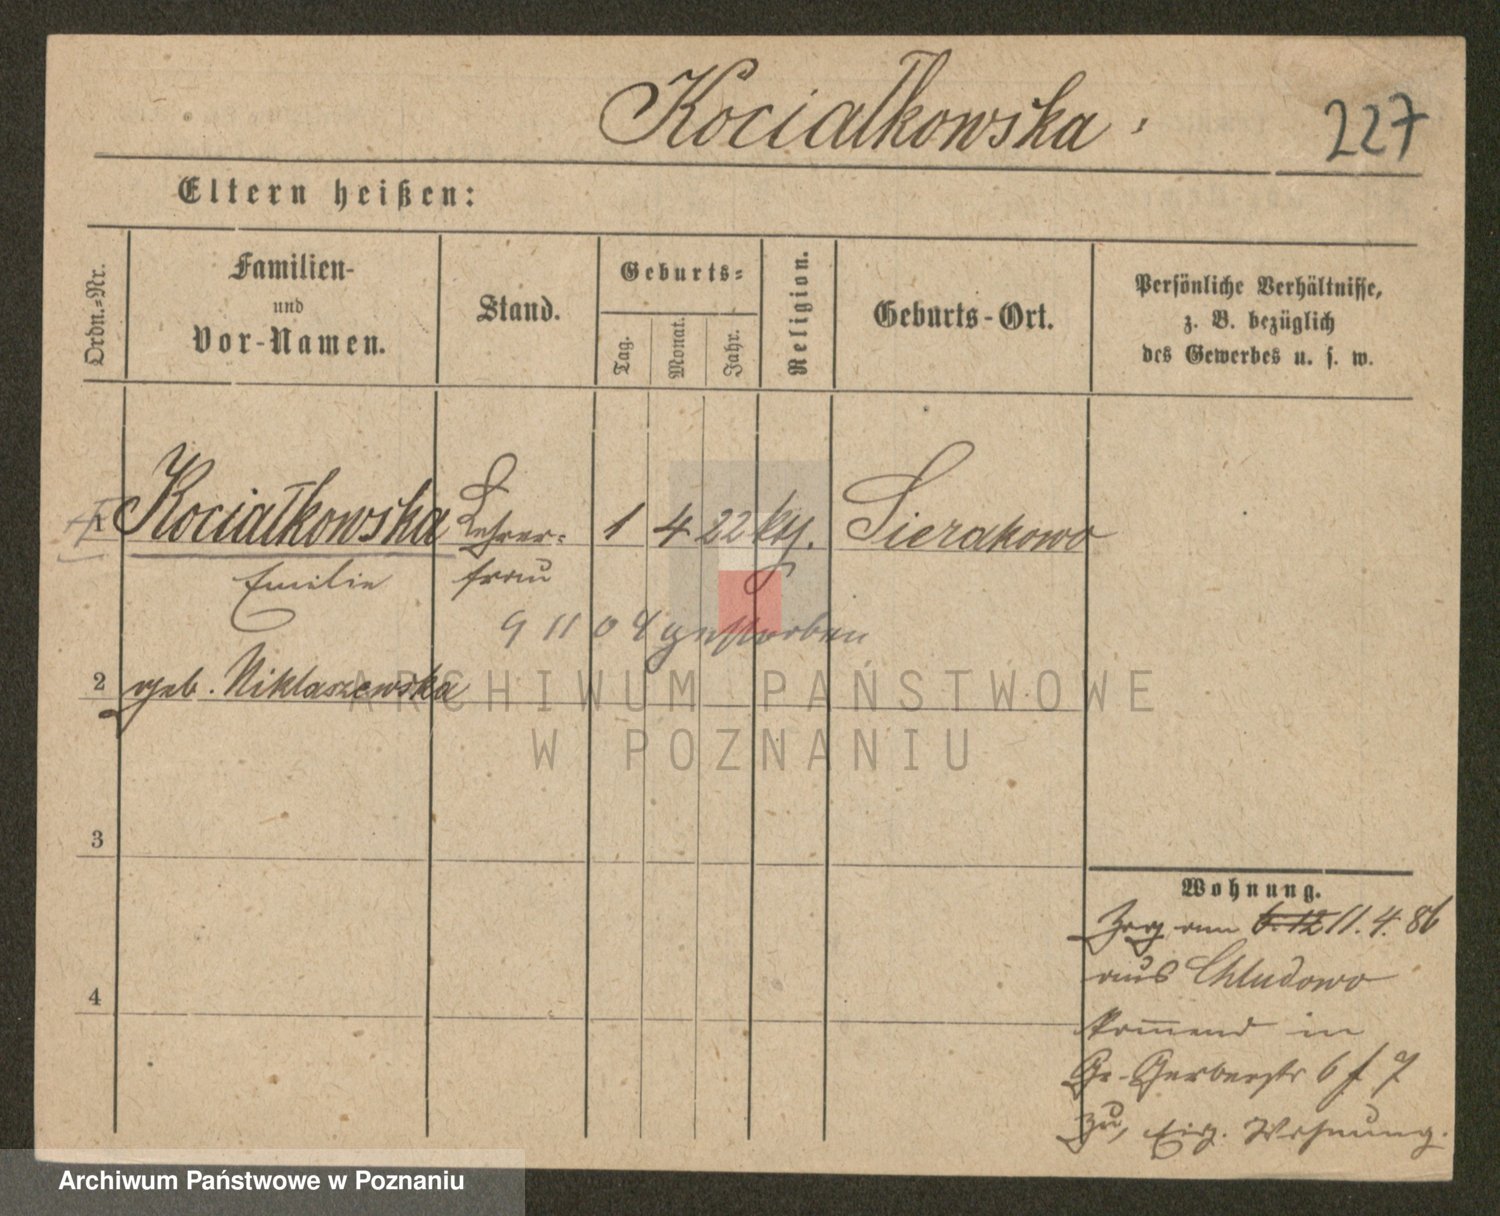 Kociałkowska
227
Eltern heißen:
Ordn.=Nr.
Familien-
und
Vor-Namen.
Stand.
Geburts=
Tag.
Monat.
Jahr.
Religion.
Geburts-Ort.
Persönliche Verhältnisse,
z. B. bezüglich
des Gewerbes u. s. w.
1 Kociałkowska Lehrer= 1 4 22 kth. Sierakowo
Emilie frau
9 11 04 gestorben
2 geb. Niklaszewska
3
4
Wohnung.
Zog am 6. 12 11. 4. 86
aus Chludowo
kommend in
Gr. Gerberstr 6 7
zu, Eig. Wohnung.
ARCHIWUM PAŃSTWOWE
W POZNANIU
Archiwum Państwowe w Poznaniu